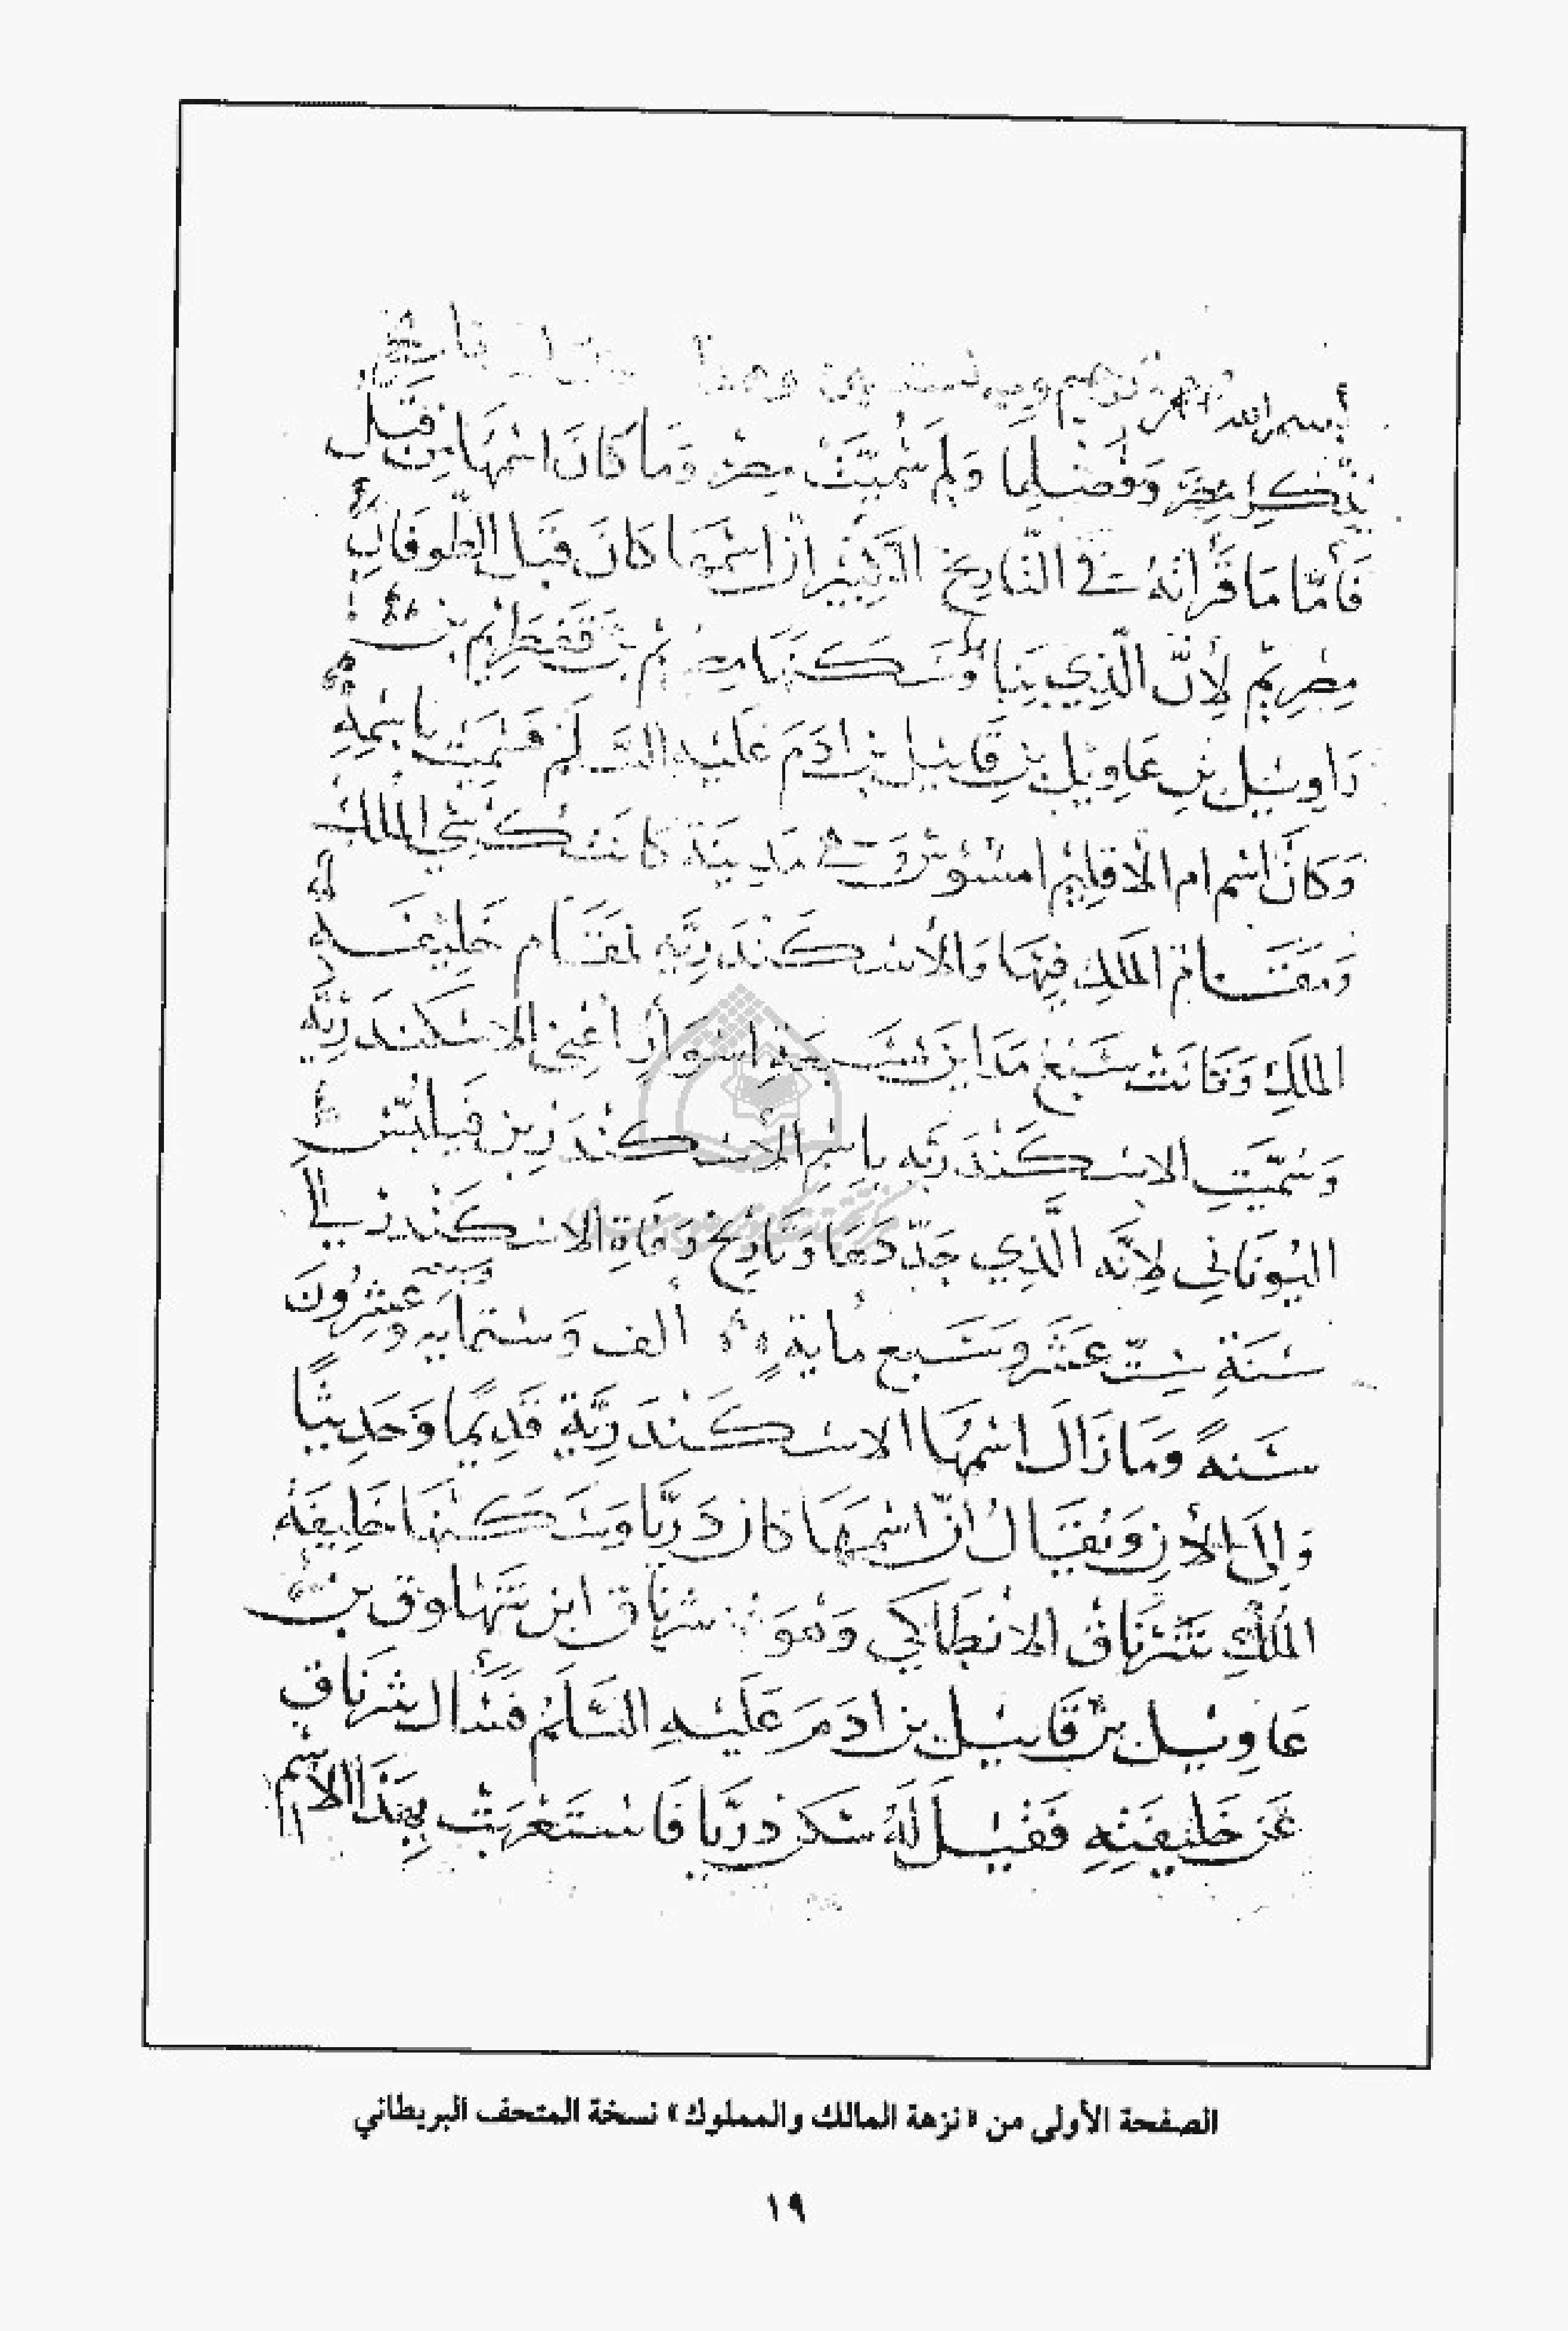 بسم الله الرحمن الرحيم وبه نستعين وهذا
نذكر مصر وفضلها ولم سُمِّيَتْ مصر وَمَا كَانَ اسْمُهَا مِن قَبْل
فَأَمَّا مَا قَرَأتهُ في التَّاريخ الكَبِيْر انّ اسْمَهَا كانَ قبَل الطُوفَان
مِصْرِيْم لأِنَّ الَّذِي بَنَاهَا وَسَكَنَهَا بن
دَاوِيْل بن عَاوِيْل بنِ قَابيْل بن ادَمَ عَلَيْهِ السَّلَم فَسُمِّيَتْ بِاسْمِهِ
وَكَانَ اسْم ام الاقلِيْم امسُوْسْ وَهي مَدِينَة كانَتْ كُرْسِي المَلِكْ
وَمَقَام المَلِكِ فِيْهَا وَالاسْكَنْدَرِيَّه مَقَام خَلِيْفَه
المَلِكِ وَكَانَتْ سَبْعْ مَدَاين بسَبعَةِ اسْوَارٍ أعْنِي الاسْكَندَرِيَّة
وَسُمِّيَتِ الاسْكَنْدَرِيَّه بِاسْمِ الاسْكَنْدَر بن فَيلبُس
اليُونَانِي لأِنَّه الَّذِي جَدَّدَهَا وَتَارِيْخ وَفَاةِ الاسْكَنْدَرْ الي
سَنَةِ سِتّ عَشَر وسَبع مايةٍ ألف وَستمايه وسبعه وعِشرُونَ
سَنةً وَمَا زَالَ اسْمُهَا الاسْكَنْدَرِيَّةِ قَدِيْمًا وَحَدِيثًا
وَالِي الأن وَيُقَال انّ اسْمهَا كان دَرِيَّا وَسَكَنْهَا خَلِيفَة
المَلِكِ شَرْنَاقْ الانْطَاكِي وَهْوَ شرنَاق ابن شَهْلوق بن
عَاوِيْل بنْ قَابِيْل بن ادَمَ عَلَيْهِ السَّلَمُ فَسَأَل شَرنَاق
عَن خَلِيفَتِه فَقِيْل لَهُ سَكن دَرِيَّا فَاسْتَعْرَبَتْ بِهَذَا الاسْم
الصفحة الأولى من «نزهة المالك والمملوك» نسخة المتحف البريطاني
١٩